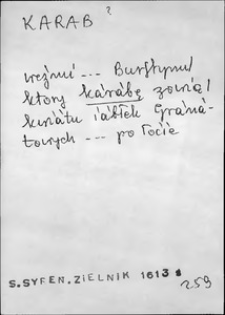 KARAB ?
weźmi ... Burſtynu/
ktory kárábę zowią/
kwiátu iábłek Graná-
towych ... po łocie
S. SYREN. ZIELNIK 1613
259